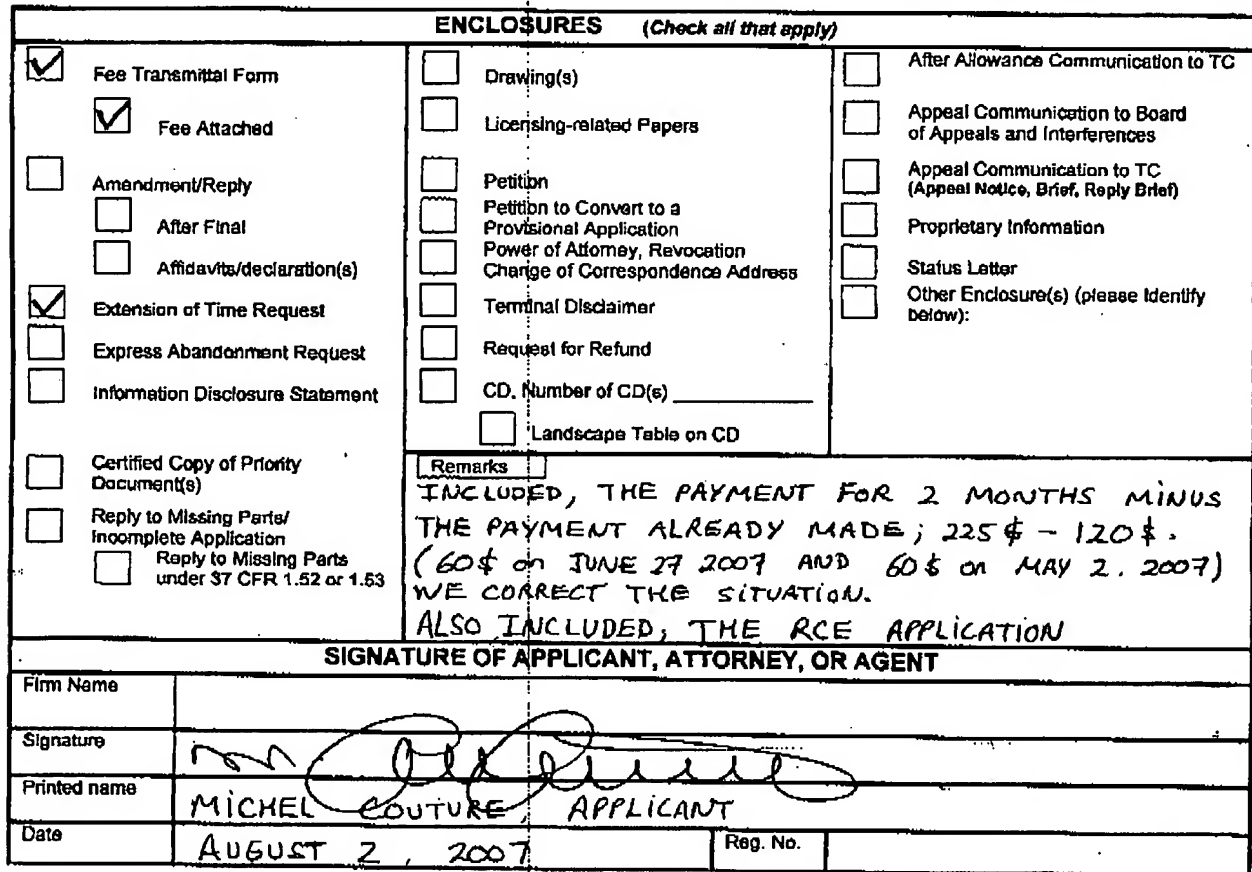 ENCLOSURES (Check all that apply)
Fee Transmittal Form
Fee Attached
Amendment/Reply
After Final
Affidavits/declaration(s)
Extension of Time Request
Express Abandonment Request
Information Disclosure Statement
Certified Copy of Priority
Document(s)
Reply to Missing Parts/
Incomplete Application
Reply to Missing Parts
under 37 CFR 1.52 or 1.53
Drawing(s)
Licensing-related Papers
Petition
Petition to Convert to a
Provisional Application
Power of Attorney, Revocation
Change of Correspondence Address
Terminal Disclaimer
Request for Refund
CD, Number of CD(s)
Landscape Table on CD
After Allowance Communication to TC
Appeal Communication to Board
of Appeals and Interferences
Appeal Communication to TC
(Appeal Notice, Brief, Reply Brief)
Proprietary Information
Status Letter
Other Enclosure(s) (please Identify
below):
Remarks
INCLUDED, THE PAYMENT FOR 2 MONTHS MINUS
THE PAYMENT ALREADY MADE; 225$ - 120$.
(60$ on JUNE 27 2007 AND 60$ on MAY 2. 2007)
WE CORRECT THE SITUATION.
ALSO INCLUDED, THE RCE APPLICATION
SIGNATURE OF APPLICANT, ATTORNEY, OR AGENT
Firm Name
Signature
Printed name
MICHEL COUTURE, APPLICANT
Date
AUGUST 2, 2007
Reg. No.